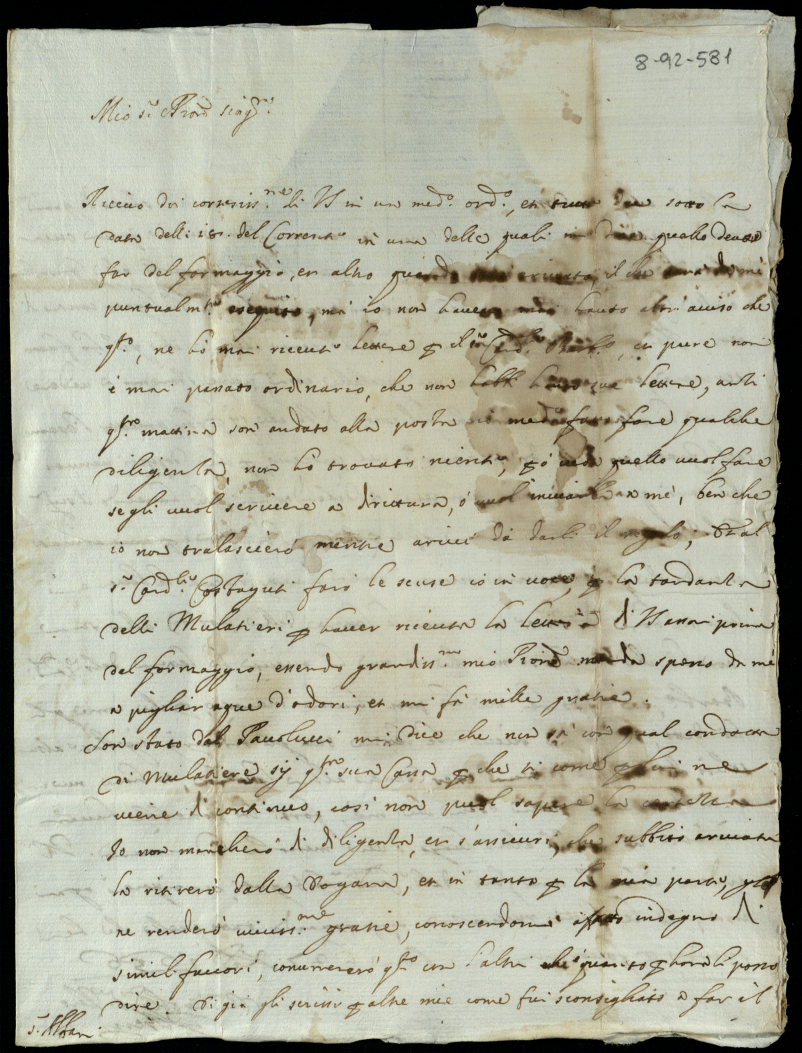 8-92-581
Mio s.r Pron sing.r
Riceuo doi cortesiss.me di VS in un med.o ord.o, et sotto la
data delli 18. del Corrente in una delle quali mi dice quello deuo
far del formaggio, et altro quando il che sarà da mé
puntualm.te eseguito, má io non hauere mai hauto altri auuiso che
q.to, ne hó mai riceuute lettere p il s.r Card.le et pure non
é mai passato ordinario, che non habbi hauto sue lettere, anzi
q.ta mattina son andato alla posta io med.o far fare qualche
diligenza, non hó trouato niente, p ó ueda quello uuol fare
se gli uuol scriuere a drittura, ó uuol inuiarla a mé, ben che
io non tralasciero mentre ariui dá darli il ; et al
s.r Card.le Costaguti faró le scuse io in uoce, p la tardanza
delli Mulatieri p hauer riceuta la lettera di VS assai prima
del formaggio, essendo grandiss.mo mio Prone manda spesso da mé
a pigliar aque d'odori, et mi fá mille gratie.
Son stato dal Pauolucci mi dice che non sá con qual condotta
di Mulatiere sij q.ta sua Cassa p che si come p lui ne
uiene di continuo, così non puol sapere la
Io non mancheró di diligenza, et s'assicuri, che subbito arriuata
la ritireró dalla Dogana, et in tanto p la mia parte,
ne renderó uiuiss.me gratie, conoscendomi affatto indegno di
simili fauori, conumereró q.to con l'altri che quanto p hora li posso
dire. Di giá gli scrissi p altre mie come fui sconsigliato a far il
s.r